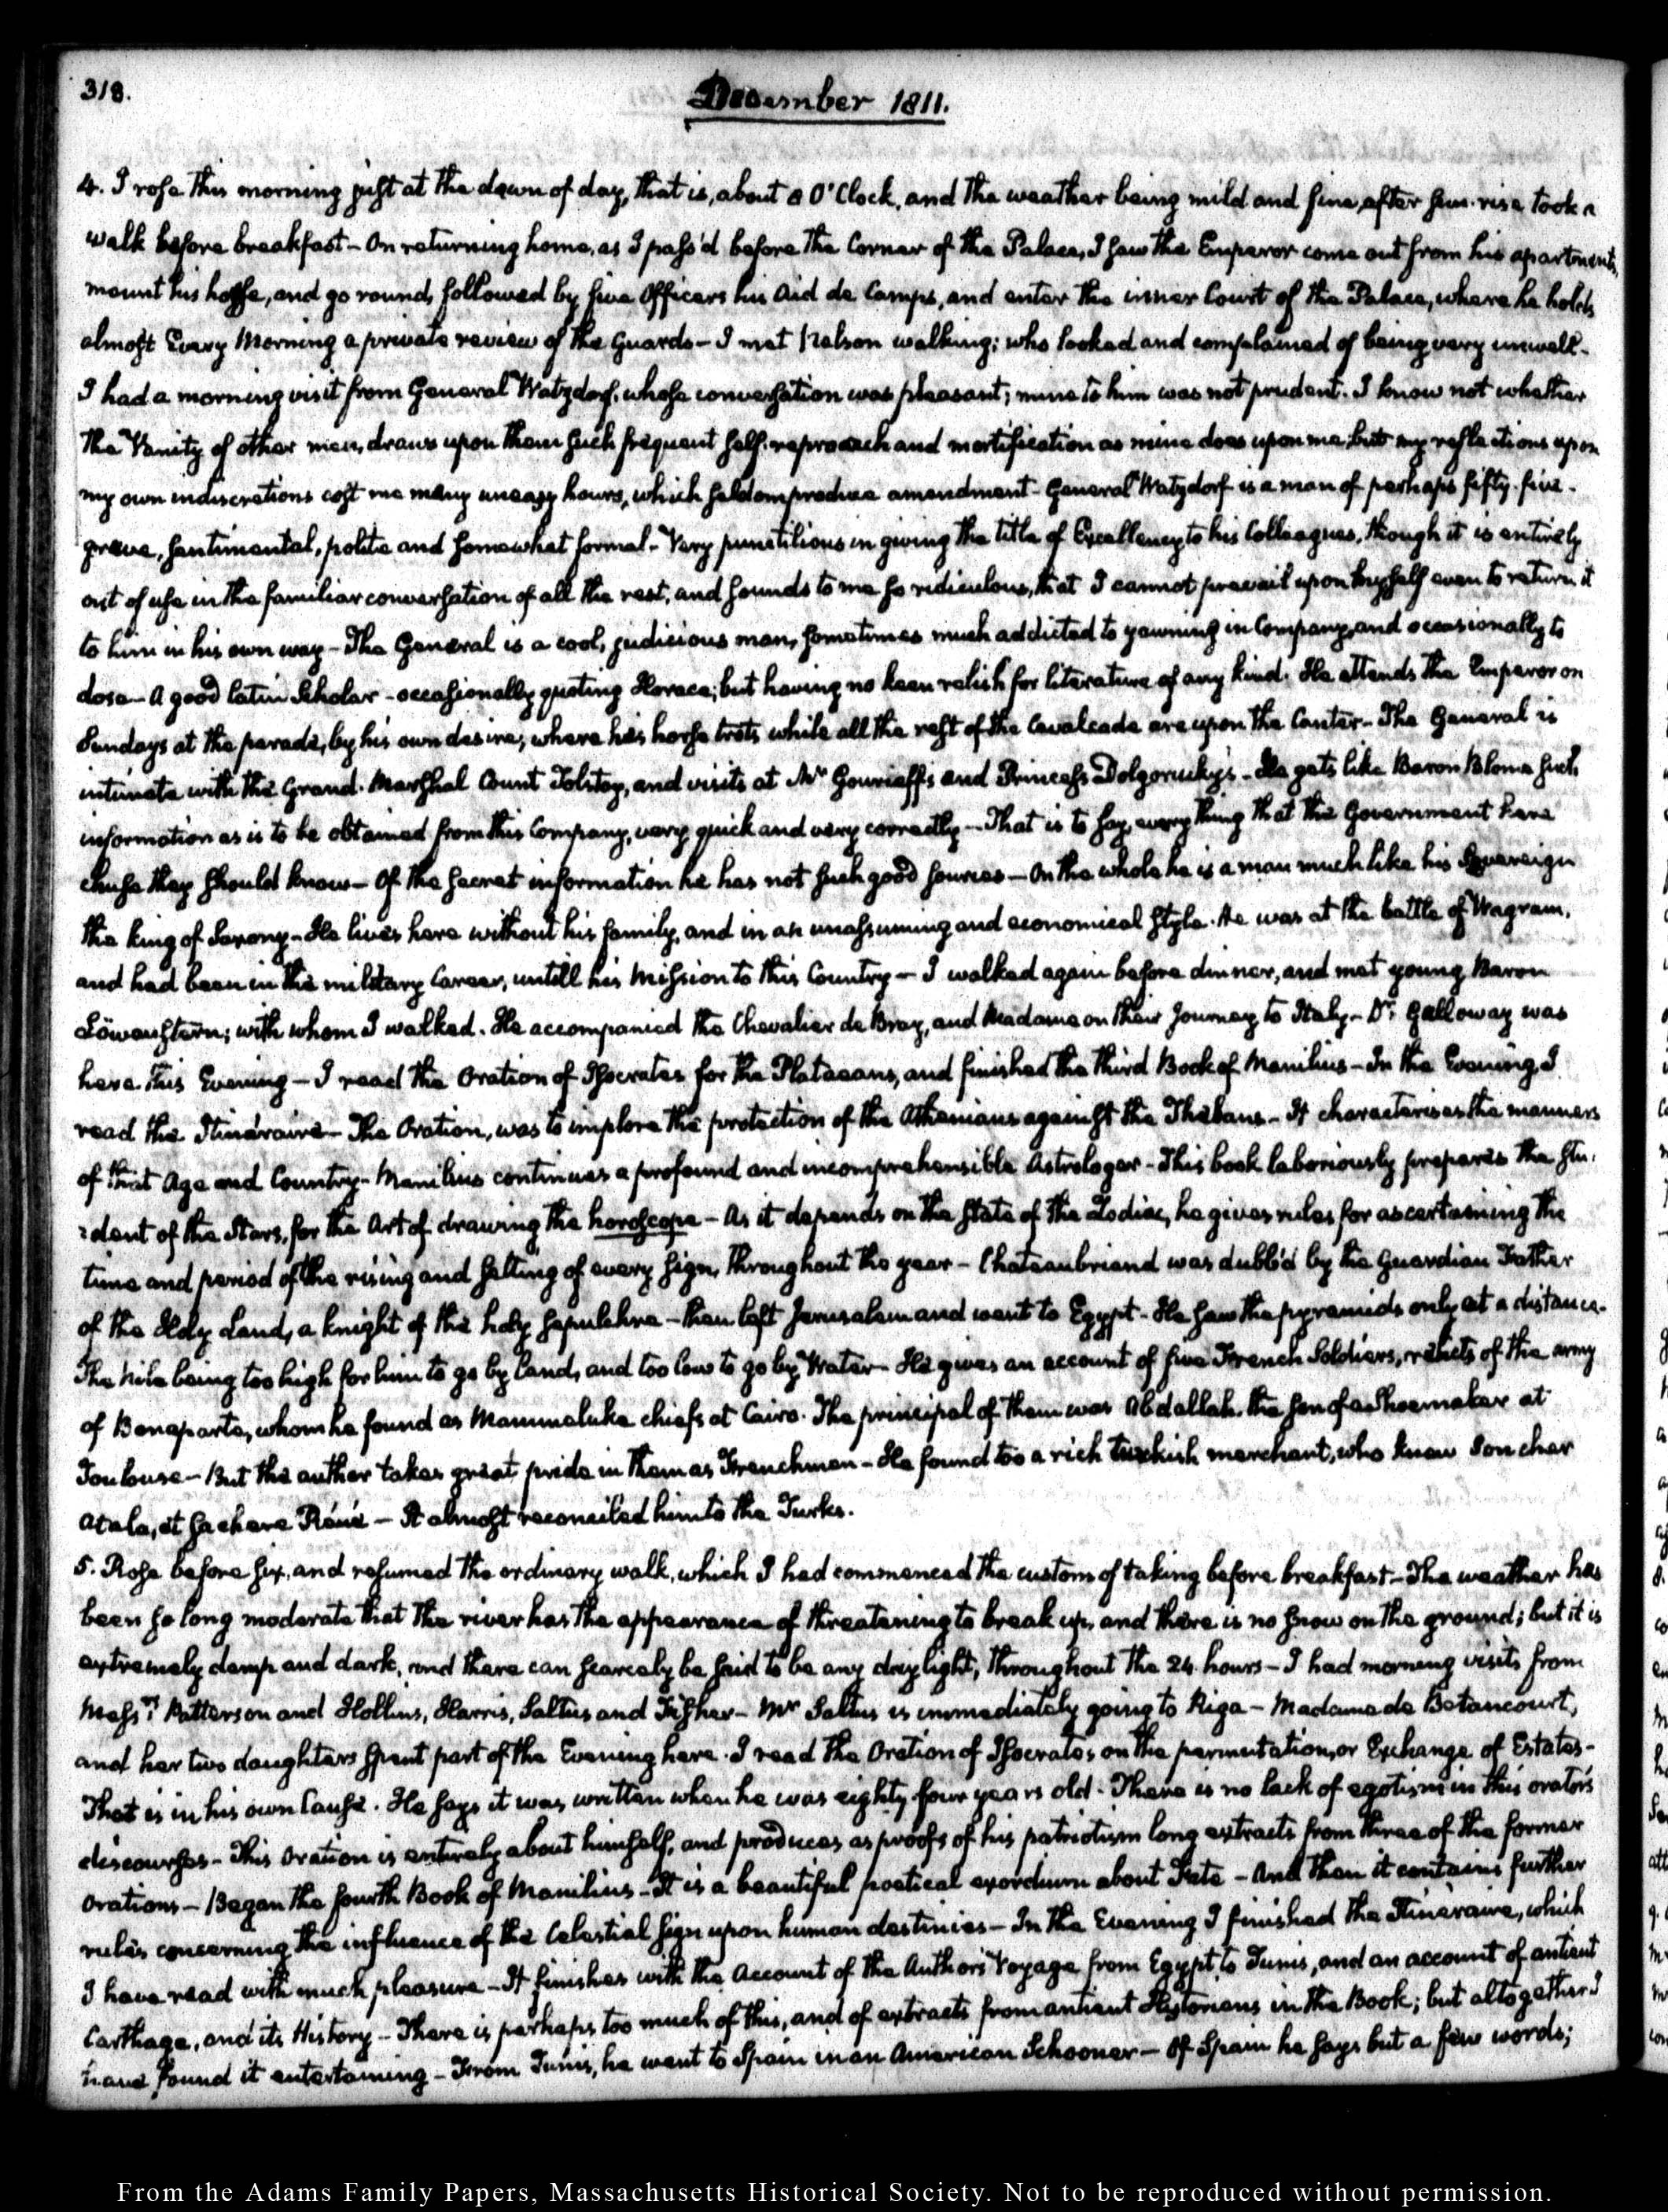 318.
December 1811.
4. I rose this morning just at the dawn of day, that is, about 8 O'Clock, and the weather being mild and fine, after sun-rise took a
walk before breakfast — On returning home, as I pass'd before the Corner of the Palace, I saw the Emperor come out from his apartments,
mount his horse, and go round, followed by five Officers his Aid de Camps, and enter the inner Court of the Palace, where he holds
almost Every Morning a private review of the Guards — I met Nelson walking; who looked and complained of being very unwell.
I had a morning visit from General Watzdorf, whose conversation was pleasant; mine to him was not prudent. I know not whether
the Vanity of other men, draws upon them such frequent self-reproach and mortification as mine does upon me; but my reflections upon
my own indiscretions cost me many uneasy hours, which seldom produce amendment — General Watzdorf is a man of perhaps fifty-five.
grave, sentimental, polite and somewhat formal — Very punctilious in giving the title of Excellency to his Colleagues, though it is entirely
out of use in the familiar conversation of all the rest, and sounds to me so ridiculous, that I cannot prevail upon myself even to return it
to him in his own way — The General is a cool, judicious man, sometimes much addicted to yawning in Company, and occasionally to
dose — A good latin Scholar — occasionally quoting Horace; but having no keen relish for literature of any kind. He attends the Emperor on
Sundays at the parade, by his own desire, where his horse trots while all the rest of the Cavalcade are upon the Canter — The General is
intimate with the Grand-Marshal Count Tolstoy, and visits at Mr. Gourieff's and Princess Dolgorucky's — He gets like Baron Blome such
information as is to be obtained from this Company, very quick and very correctly — That is to say, every thing that the Government here
chuse they should know — Of the secret information he has not such good sources — On the whole he is a man much like his Sovereign
the king of Saxony — He lives here without his family, and in an unassuming and economical style. He was at the battle of Wagram,
and had been in the military Career, untill his Mission to this Country — I walked again before dinner, and met young Baron
Löwenstern; with whom I walked. He accompanied the Chevalier de Bray, and Madame on their Journey to Italy — Dr. Galloway was
here this Evening — I read the Oration of Isocrates for the Plataeans, and finished the third Book of Manilius — In the Evening I
read the Itinéraire — The Oration, was to implore the protection of the Athenians against the Thebans — It characterises the manners
of that Age and Country — Manilius continues a profound and incomprehensible Astrologer — This book laboriously prepares the stu-
:dent of the Stars, for the Art of drawing the horoscope — As it depends on the state of the Zodiac, he gives rules for ascertaining the
time and period of the rising and setting of every sign, throughout the year — Chateaubriand was dubb'd by the Guardian Father
of the Holy Land, a knight of the holy sepulchre — then left Jerusalem and went to Egypt — He saw the pyramids only at a distance.
The Nile being too high for him to go by Land, and too low to go by Water — He gives an account of five French Soldiers, relicts of the army
of Bonaparte, whom he found as Mammeluke chiefs at Cairo. The principal of them was Abdallah. the son of a Shoemaker at
Toulouse — But the author takes great pride in them as Frenchmen — He found too a rich turkish merchant, who knew Son cher
Atala, et sa chere Réné — It almost reconciled him to the Turks.
5. Rose before six, and resumed the ordinary walk, which I had commenced the custom of taking before breakfast — The weather has
been so long moderate that the river has the appearance of threatening to break up, and there is no snow on the ground; but it is
extremely damp and dark, and there can scarcely be said to be any day light, throughout the 24 hours — I had morning visits from
Messrs. Patterson and Hollins, Harris, Saltus and Fisher — Mr. Saltus is immediately going to Riga — Madame de Betancourt,
and her two daughters spent part of the Evening here. I read the Oration of Isocrates on the permutation, or Exchange of Estates —
That is in his own Cause. He says it was written when he was eighty four years old. There is no lack of egotism in this orator's
discourses — This Oration is entirely about himself, and produces as proofs of his patriotism long extracts from three of the former
Orations — Began the fourth Book of Manilius — It is a beautiful poetical exordium about Fate — And then it contains further
rules concerning the influence of the Celestial sign upon human destinies — In the Evening I finished the Itinéraire, which
I have read with much pleasure — It finishes with the Account of the Author's Voyage from Egypt to Tunis, and an account of antient
Carthage, and its History — There is perhaps too much of this, and of extracts from antient Historians in the Book; but altogether I
have found it entertaining — From Tunis, he went to Spain in an American Schooner — Of Spain he says but a few words;
From the Adams Family Papers, Massachusetts Historical Society. Not to be reproduced without permission.